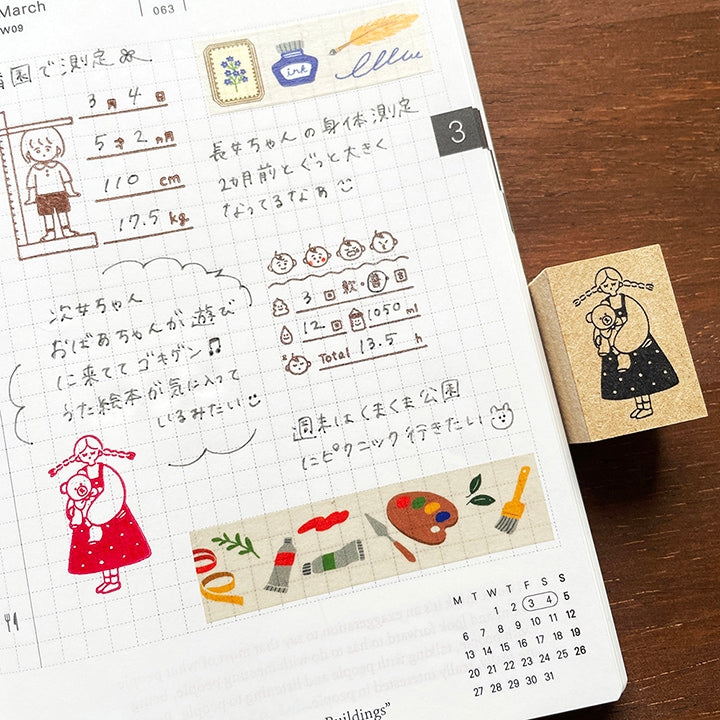 March
W09
063
園で測定
3月 4日
5才 2ヵ月
110 cm
17.5 kg
ink
3
長女ちゃんの身体測定
2ヵ月前とぐっと大きく
なってるなぁ
次女ちゃん
おばあちゃんが遊び
に来ててゴキゲン♫
うた絵本が気に入って
いるみたい
3回 軟・普・固
12回 1050 ml
Total 13.5 h
週末はくまくま公園
にピクニック行きたい
M T W T F S S
1 2 3 4 5
6 7 8 9 10 11 12
13 14 15 16 17 18 19
20 21 22 23 24 25 26
27 28 29 30 31
Buildings”